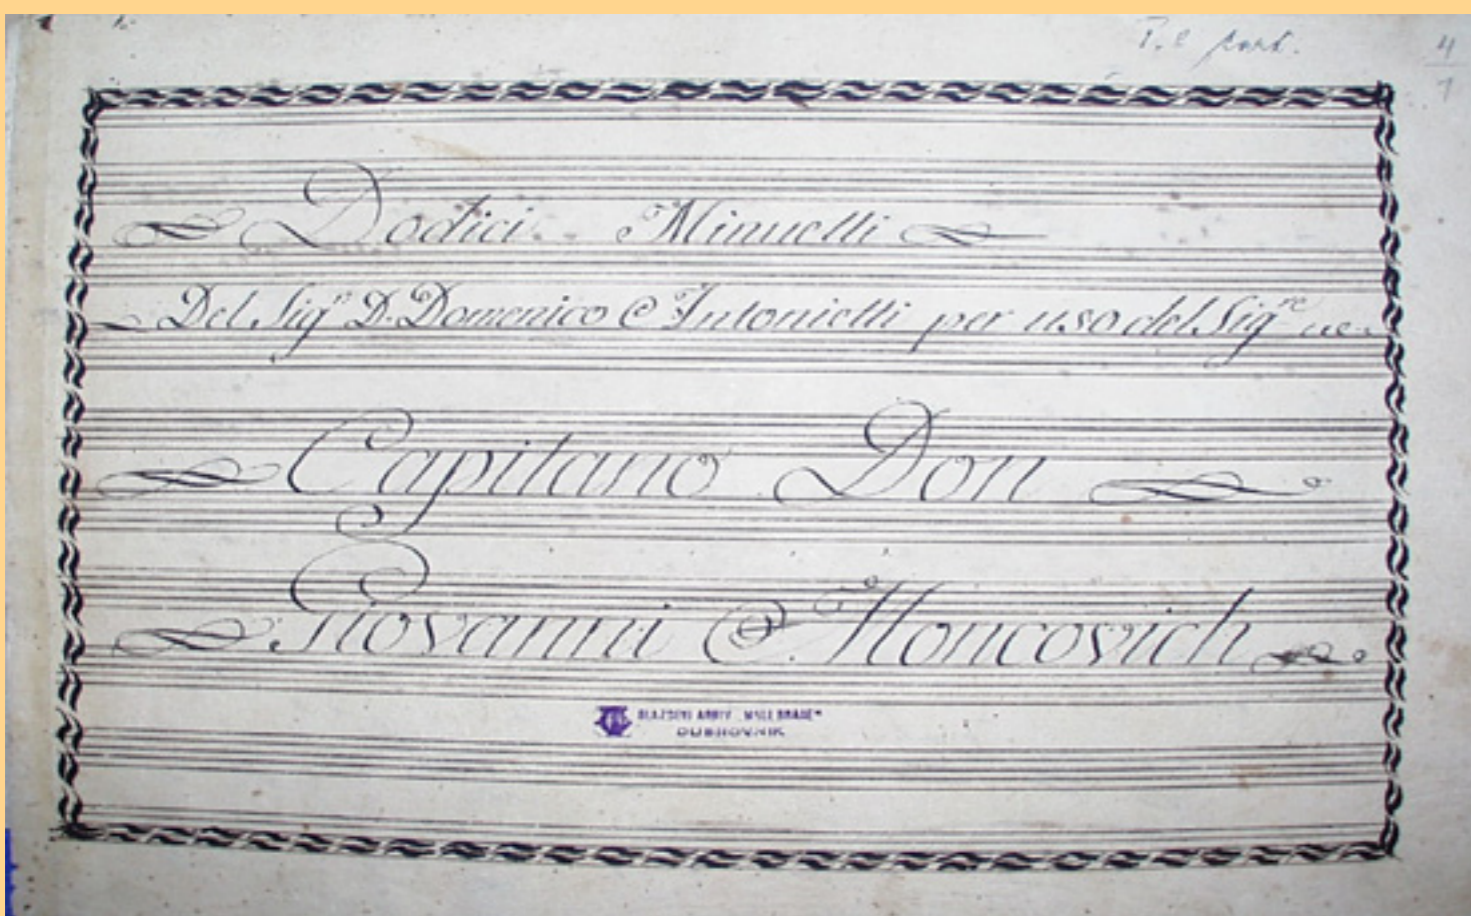 P.e part.
4
1
Dodici Minuetti
Del Sigr. D. Domenico Antonietti per uso del Sigre
Capitano Don
Giovanni Moncovich
GLAZBENI ARHIV „MALE BRAĆE“
DUBROVNIK